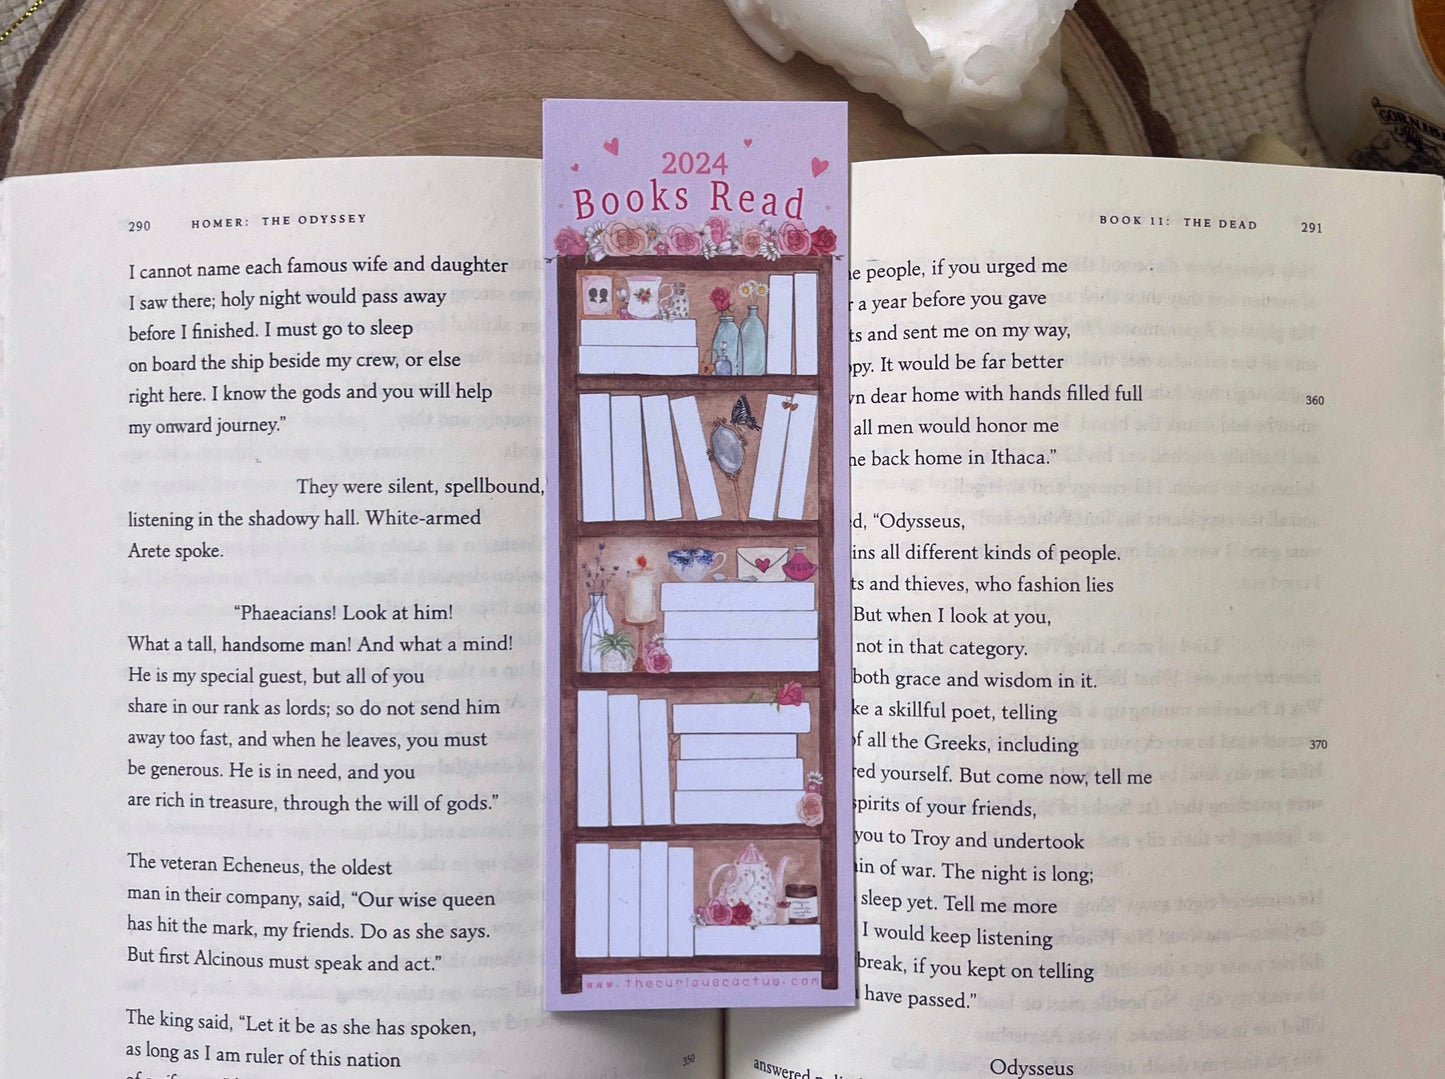 290 HOMER: THE ODYSSEY
I cannot name each famous wife and daughter
I saw there; holy night would pass away
before I finished. I must go to sleep
on board the ship beside my crew, or else
right here. I know the gods and you will help
my onward journey.”
They were silent, spellbound,
listening in the shadowy hall. White-armed
Arete spoke.
“Phaeacians! Look at him!
What a tall, handsome man! And what a mind!
He is my special guest, but all of you
share in our rank as lords; so do not send him
away too fast, and when he leaves, you must
be generous. He is in need, and you
are rich in treasure, through the will of gods.”
The veteran Echeneus, the oldest
man in their company, said, “Our wise queen
has hit the mark, my friends. Do as she says.
But first Alcinous must speak and act.”
The king said, “Let it be as she has spoken,
as long as I am ruler of this nation
350
2024
Books Read
www.thecuriouscactus.com
BOOK 11: THE DEAD 291
people, if you urged me
a year before you gave
and sent me on my way,
It would be far better
dear home with hands filled full 360
all men would honor me
back home in Ithaca.”
“Odysseus,
all different kinds of people.
and thieves, who fashion lies
But when I look at you,
not in that category.
both grace and wisdom in it.
a skillful poet, telling
all the Greeks, including 370
yourself. But come now, tell me
of your friends,
you to Troy and undertook
of war. The night is long;
sleep yet. Tell me more
I would keep listening
break, if you kept on telling
have passed.”
Odysseus
answered